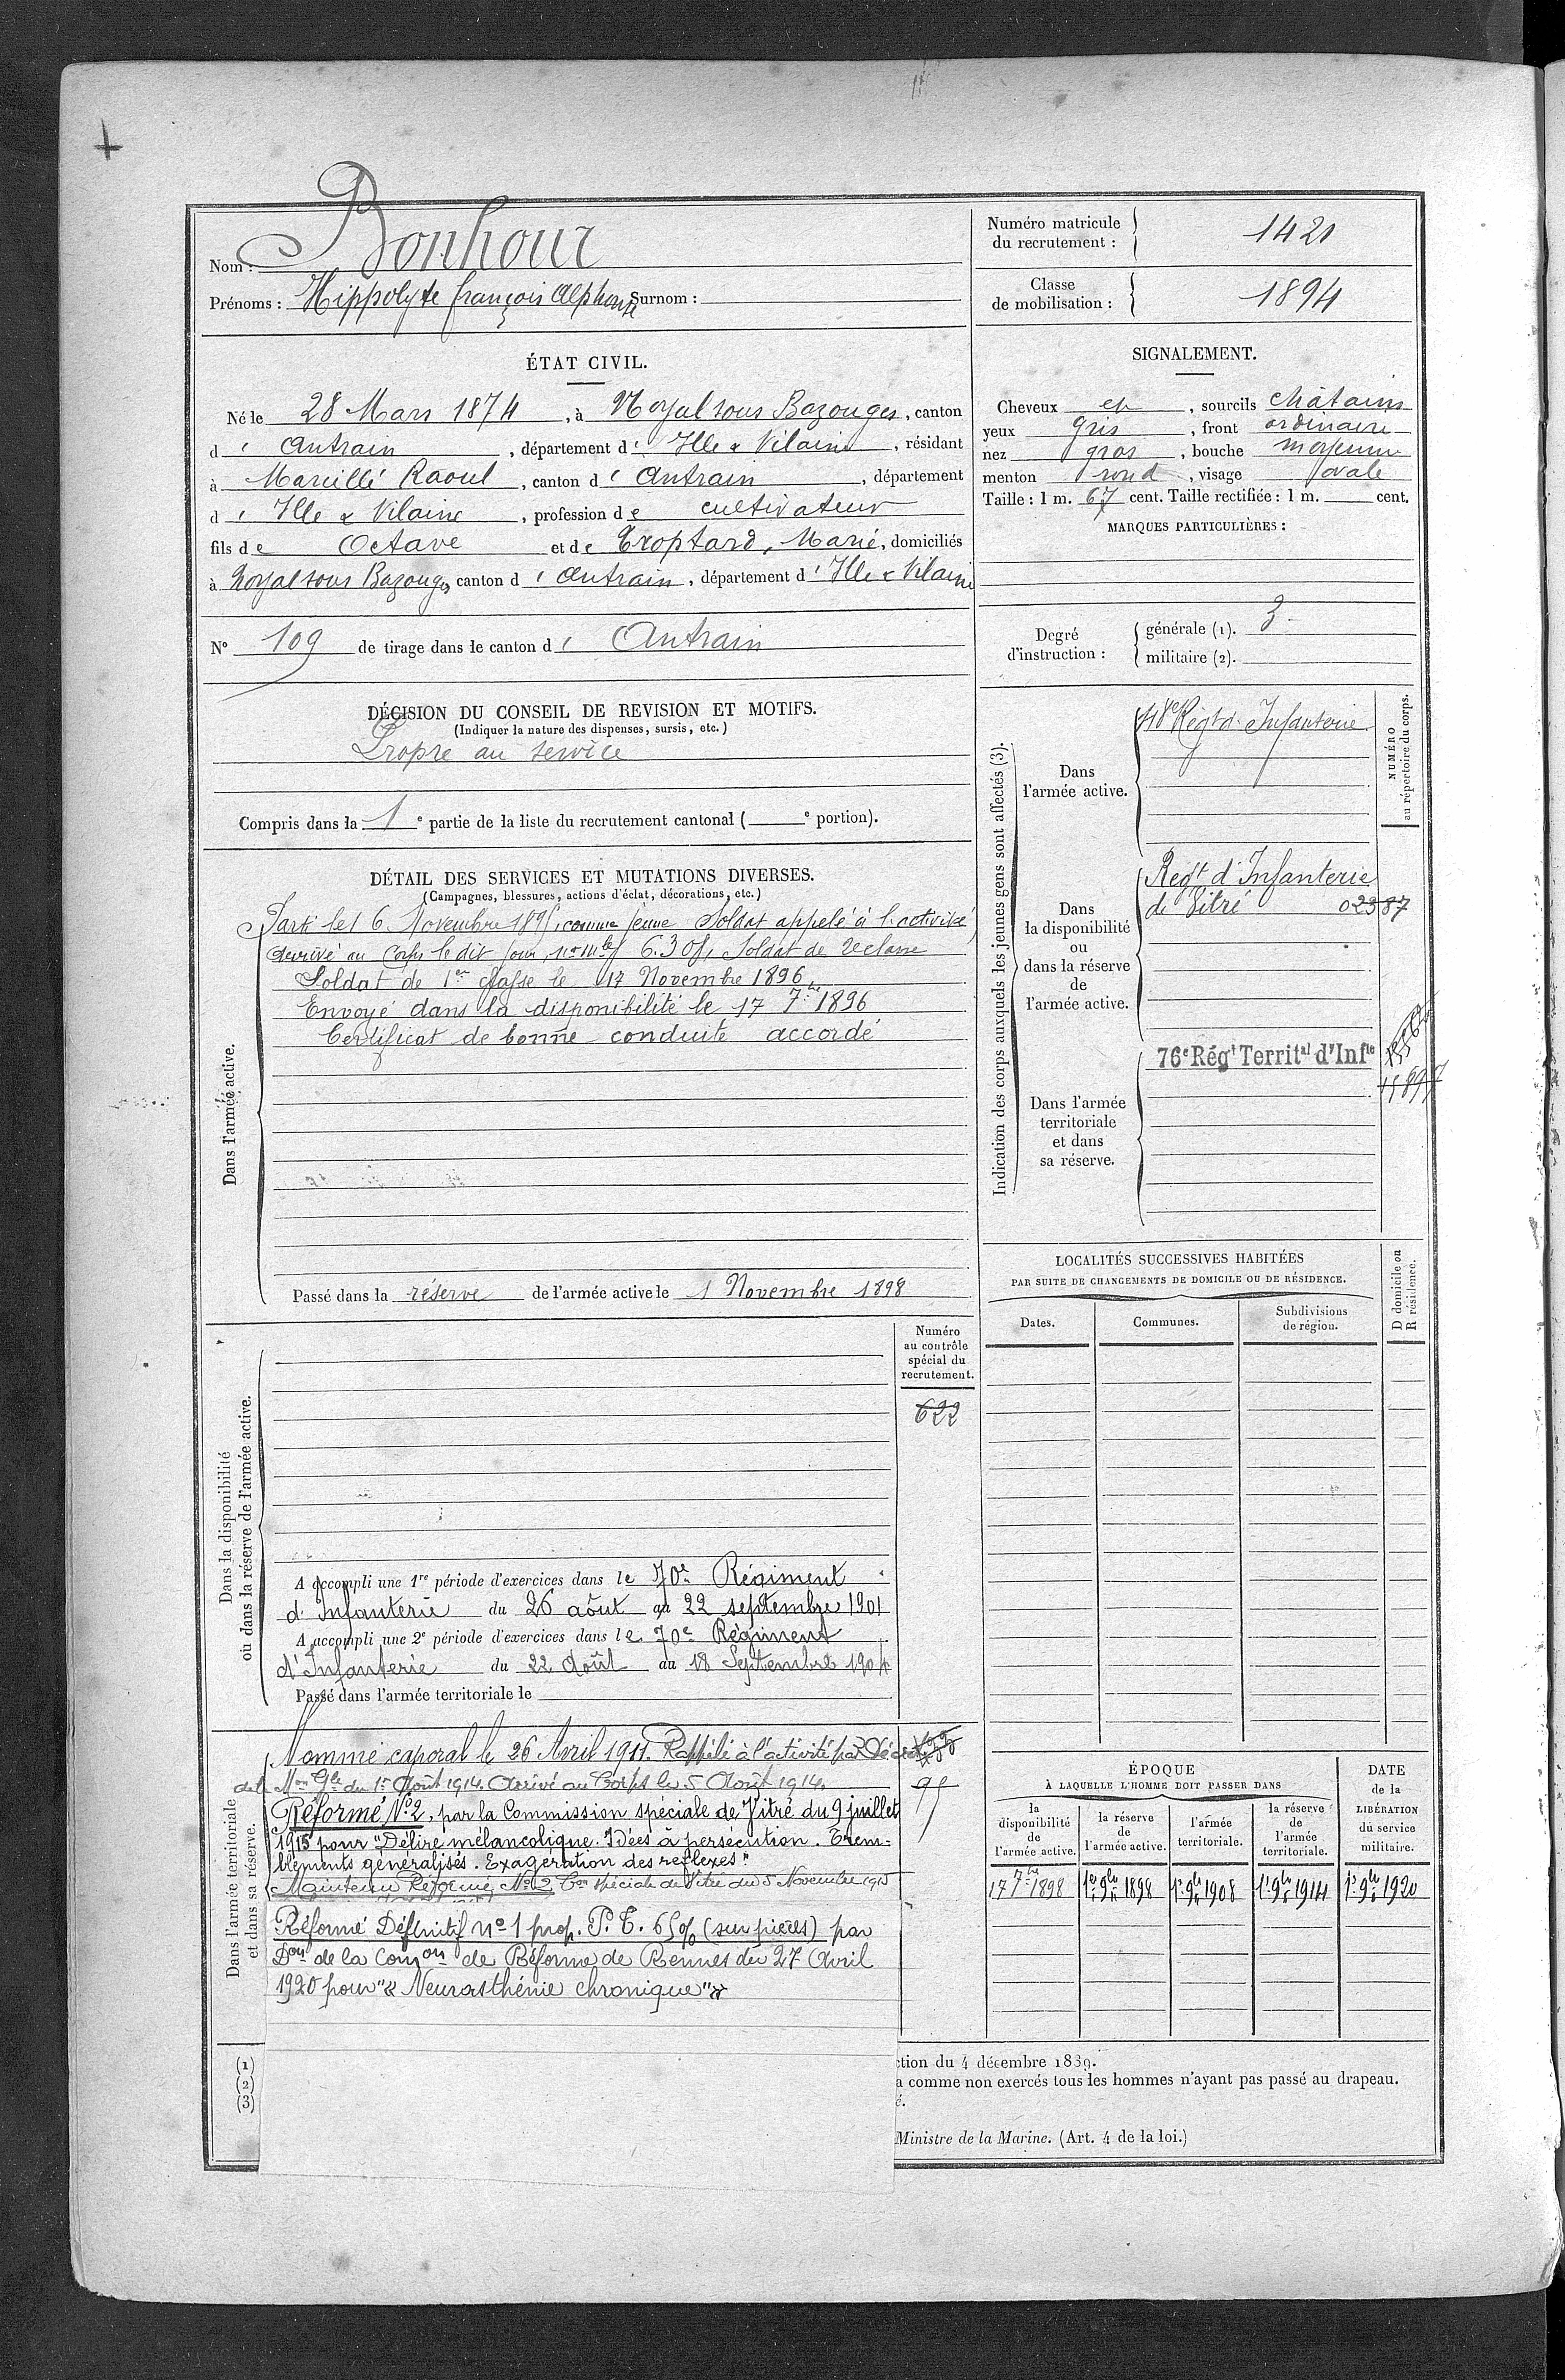 Nom : Bonhour
Prénoms : Hippolyte françois Alphonse Surnom :
Numéro matricule du recrutement : 1421
Classe de mobilisation : 1894
ÉTAT CIVIL.
Né le 28 Mars 1874, à Noyal sous Bazouges, canton
d' Antrain, département d' Ille & Vilaine, résidant
à Marcillé Raoul, canton d' Antrain, département
d' Ille & Vilaine, profession de cultivateur
fils de Octave et de Troptard, Marie, domiciliés
à Noyal sous Bazouges, canton d' Antrain, département d' Ille & Vilaine
N° 109 de tirage dans le canton d' Antrain
SIGNALEMENT.
Cheveux et, sourcils châtains
yeux gris, front ordinaire
nez gros, bouche moyenne
menton rond, visage ovale
Taille : 1 m. 67 cent. Taille rectifiée : 1 m. cent.
MARQUES PARTICULIÈRES :
Degré d'instruction :
générale (1). 3
militaire (2).
DÉCISION DU CONSEIL DE REVISION ET MOTIFS.
(Indiquer la nature des dispenses, sursis, etc.)
Propre au service
Compris dans la 1e partie de la liste du recrutement cantonal ( e portion).
DÉTAIL DES SERVICES ET MUTATIONS DIVERSES.
(Campagnes, blessures, actions d'éclat, décorations, etc.)
Dans l'armée active.
Parti le 16 Novembre 1895, comme jeune Soldat appelé à l'activité,
Arrivé au Corps le dit jour, Soldat de 2e classe
Soldat de 1re classe le 17 Novembre 1896
Envoyé dans la disponibilité le 17 7bre 1896
Certificat de bonne conduite accordé
Passé dans la réserve de l'armée active le 1 Novembre 1898
Indication des corps auxquels les jeunes gens sont affectés (3).
NUMÉRO au répertoire du corps.
Dans l'armée active.
48e Régt d'Infanterie
Dans la disponibilité ou dans la réserve de l'armée active.
Régt d'Infanterie
de Vitré 02387
Dans l'armée territoriale et dans sa réserve.
76e Régt Territal d'Infie
LOCALITÉS SUCCESSIVES HABITÉES
PAR SUITE DE CHANGEMENTS DE DOMICILE OU DE RÉSIDENCE.
Dates. Communes. Subdivisions de région.
D domicile ou R résidence.
Dans la disponibilité ou dans la réserve de l'armée active.
Numéro au contrôle spécial du recrutement.
622
A accompli une 1re période d'exercices dans le 70e Régiment
d'Infanterie du 26 août au 22 septembre 1901
A accompli une 2e période d'exercices dans le 70e Régiment
d'Infanterie du 22 Août au 18 Septembre 1904
Passé dans l'armée territoriale le
Dans l'armée territoriale et dans sa réserve.
Nommé caporal le 26 Avril 1911. Rappelé à l'activité par Décret
de Mon Gle du 1er Août 1914. Arrivé au Corps le 5 Août 1914.
Réformé N° 2, par la Commission spéciale de Vitré du 9 juillet
1915 pour "Délire mélancolique. Idées à persécution. Trem-
blements généralisés. Exagération des reflexes."
Maintenu Réformé N° 2 Con spéciale de Vitré du 5 Novembre 1915
Réformé Définitif n° 1 prop. P. T. 65% (sur pièces) par
Don de la Comon de Réforme de Rennes du 27 Avril
1920 pour "« Neurasthénie chronique"»
ÉPOQUE
À LAQUELLE L'HOMME DOIT PASSER DANS
la disponibilité de l'armée active. la réserve de l'armée active. l'armée territoriale. la réserve de l'armée territoriale.
DATE de la LIBÉRATION du service militaire.
17 7bre 1898 1er 9bre 1898 1er 9bre 1908 1er 9bre 1914 1er 9bre 1920
(1)
(2)
(3)
ction du 4 décembre 1889.
a comme non exercés tous les hommes n'ayant pas passé au drapeau.
é.
Ministre de la Marine. (Art. 4 de la loi.)